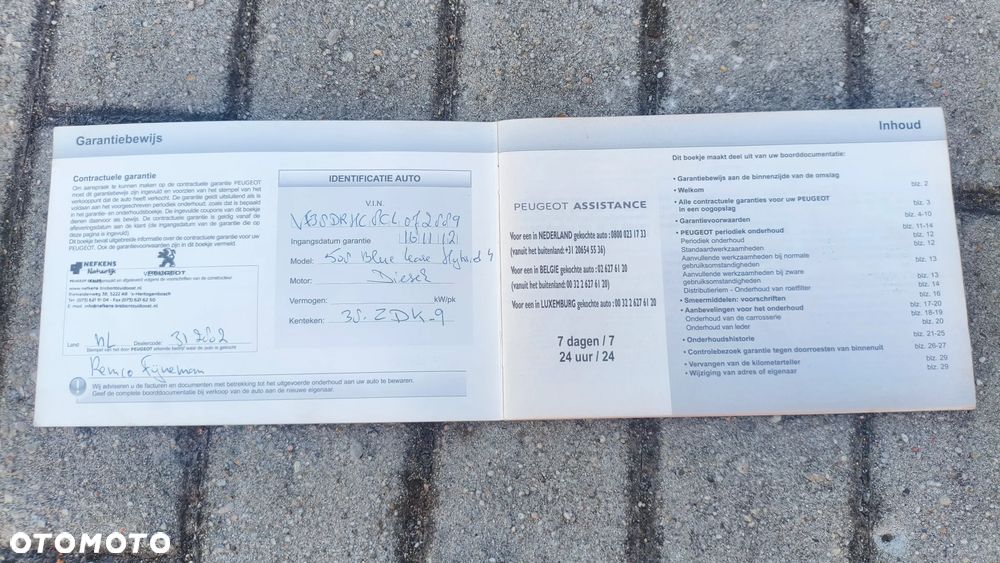 Garantiebewijs
Contractuele garantie
Om aanspraak te kunnen maken op de contractuele garantie PEUGEOT
moet dit garantiebewijs zijn ingevuld en voorzien van het stempel van het
verkooppunt dat de auto heeft verkocht. De garantie geldt uitsluitend als is
voldaan aan het voorgeschreven periodiek onderhoud, zoals dat is bepaald
in het garantie- en onderhoudsboekje. De ingevulde coupons van dit boekje
dienen daarvoor als bewijs. De contractuele garantie is geldig vanaf de
afleveringsdatum aan de klant (de ingangsdatum van de garantie die op
deze pagina is ingevuld).
Dit boekje bevat uitgebreide informatie over de contractuele garantie voor uw
PEUGEOT. Ook de garantievoorwaarden zijn in dit boekje vermeld.
NEFKENS
Natuurlijk
PEUGEOT
Land: NL Dealercode: 31 2002
Stempel van het door PEUGEOT erkende bedrijf waar de auto is gekocht
Remco
IDENTIFICATIE AUTO
V.I.N.
Ingangsdatum garantie 16 11 12
Model: 508 Blue Lease Hybrid 4
Motor: Diesel
Vermogen: kW/pk
Kenteken: 35-ZDK-9
Wij adviseren u de facturen en documenten met betrekking tot het uitgevoerde onderhoud aan uw auto te bewaren.
Geef de complete boorddocumentatie bij verkoop van de auto aan de nieuwe eigenaar.
PEUGEOT ASSISTANCE
Voor een in NEDERLAND gekochte auto : 0800 023 17 33
(vanuit het buitenland: +31 20654 55 36)
Voor een in BELGIE gekochte auto : 02 627 61 20
(vanuit het buitenland: 00 32 2 627 61 20)
Voor een in LUXEMBURG gekochte auto : 00 32 2 627 61 20
7 dagen / 7
24 uur / 24
Inhoud
Dit boekje maakt deel uit van uw boorddocumentatie:
• Garantiebewijs aan de binnenzijde van de omslag
• Welkom blz. 2
• Alle contractuele garanties voor uw PEUGEOT
in een oogopslag blz. 3
• Garantievoorwaarden blz. 4-10
• PEUGEOT periodiek onderhoud blz. 11-14
Periodiek onderhoud blz. 12
Standaardwerkzaamheden blz. 12
Aanvullende werkzaamheden bij normale
gebruiksomstandigheden blz. 13
Aanvullende werkzaamheden bij zware
gebruiksomstandigheden blz. 13
Distributieriem - Onderhoud van roetfilter blz. 14
• Smeermiddelen: voorschriften blz. 16
• Aanbevelingen voor het onderhoud blz. 17-20
Onderhoud van de carrosserie blz. 18-19
Onderhoud van leder blz. 20
• Onderhoudshistorie blz. 21-25
• Controlebezoek garantie tegen doorroesten van binnenuit blz. 26-27
• Vervangen van de kilometerteller blz. 29
• Wijziging van adres of eigenaar blz. 29
OTOMOTO